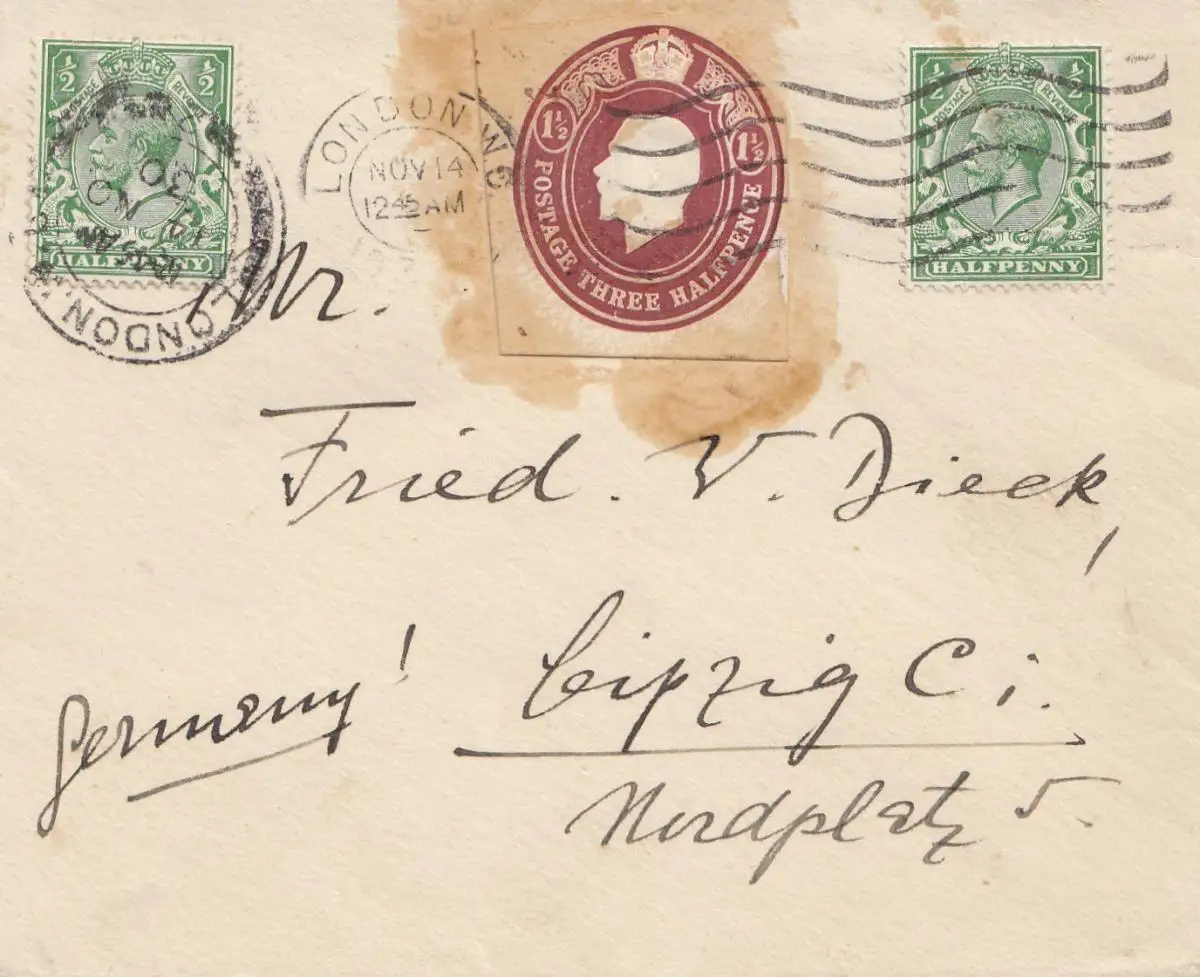 ½ ½
POSTAGE REVENUE
HALFPENNY
LONDON
LONDON W.
NOV 14
12 45 AM
1½ 1½
POSTAGE THREE HALFPENCE
½ ½
POSTAGE REVENUE
HALFPENNY
Mr.
Fried. W. Dieck,
Germany!
Leipzig C i.
Nordplatz